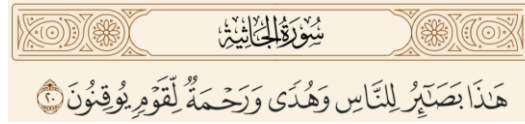 سُورَةُ الجَاثِيَةِ
هَٰذَا بَصَٰٓئِرُ لِلنَّاسِ وَهُدٗى وَرَحۡمَةٞ لِّقَوۡمٖ يُوقِنُونَ ٢٠